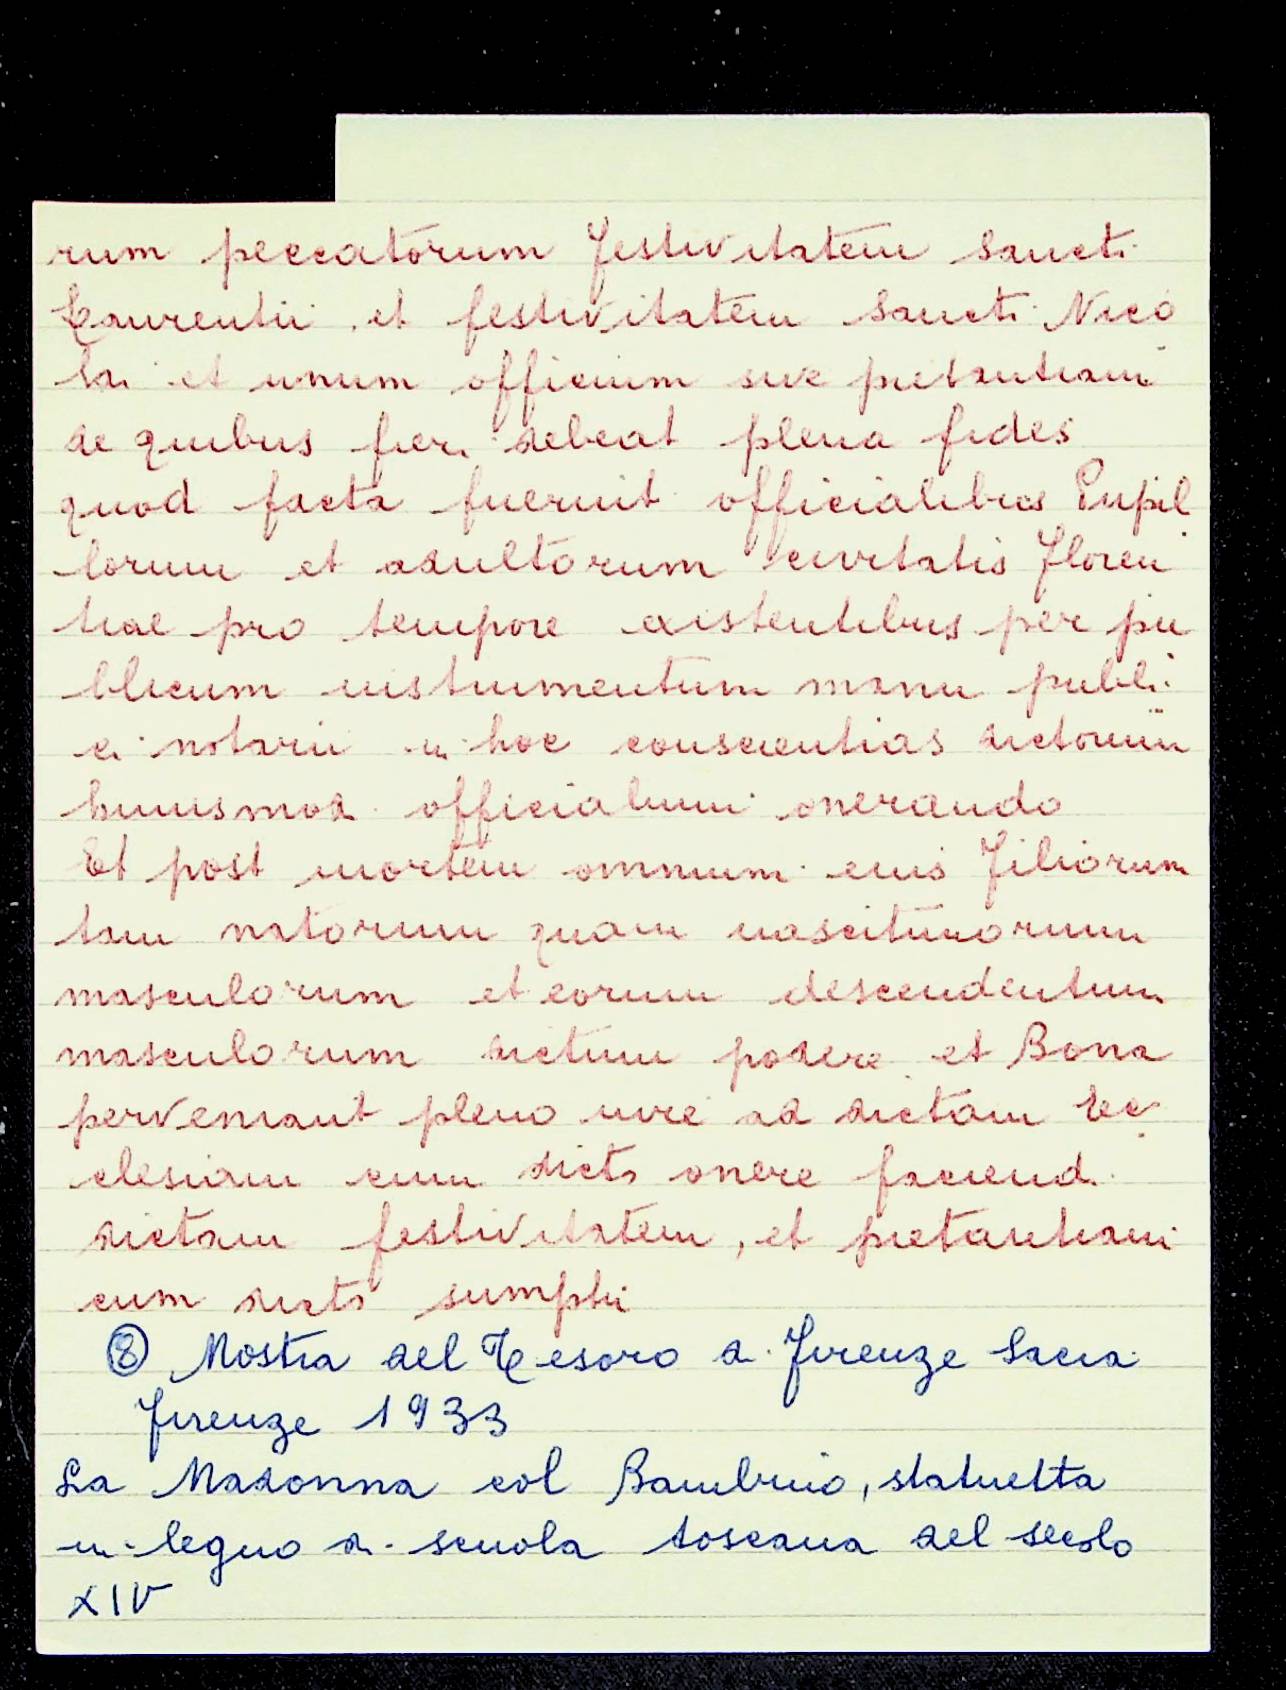 rum peccatorum festivitatem Sancti
Laurentii et festivitatem Sancti Nico
lai et unum officium sive pietantiam
de quibus fieri debeat plena fides
quod facta fuerint officialibus Pupil
lorum et adultorum civitatis Floren
tiae pro tempore existentibus per pu
blicum instrumentum manu publi
ci notarii in hoc conscientias dictorum
huiusmodi officialium onerando
Et post mortem omnium eius Filiorum
tam natorum quam nasciturorum
masculorum et eorum descendentum
masculorum dictum podere et Bona
perveniant pleno iure ad dictam Ec
clesiam cum dicto onere faciendi
dictam festivitatem, et pietantiam
cum dicto sumptu
⑧ Mostra del Tesoro di Firenze Sacra
Firenze 1933
La Madonna col Bambino, statuetta
in legno di scuola toscana del secolo
XIV